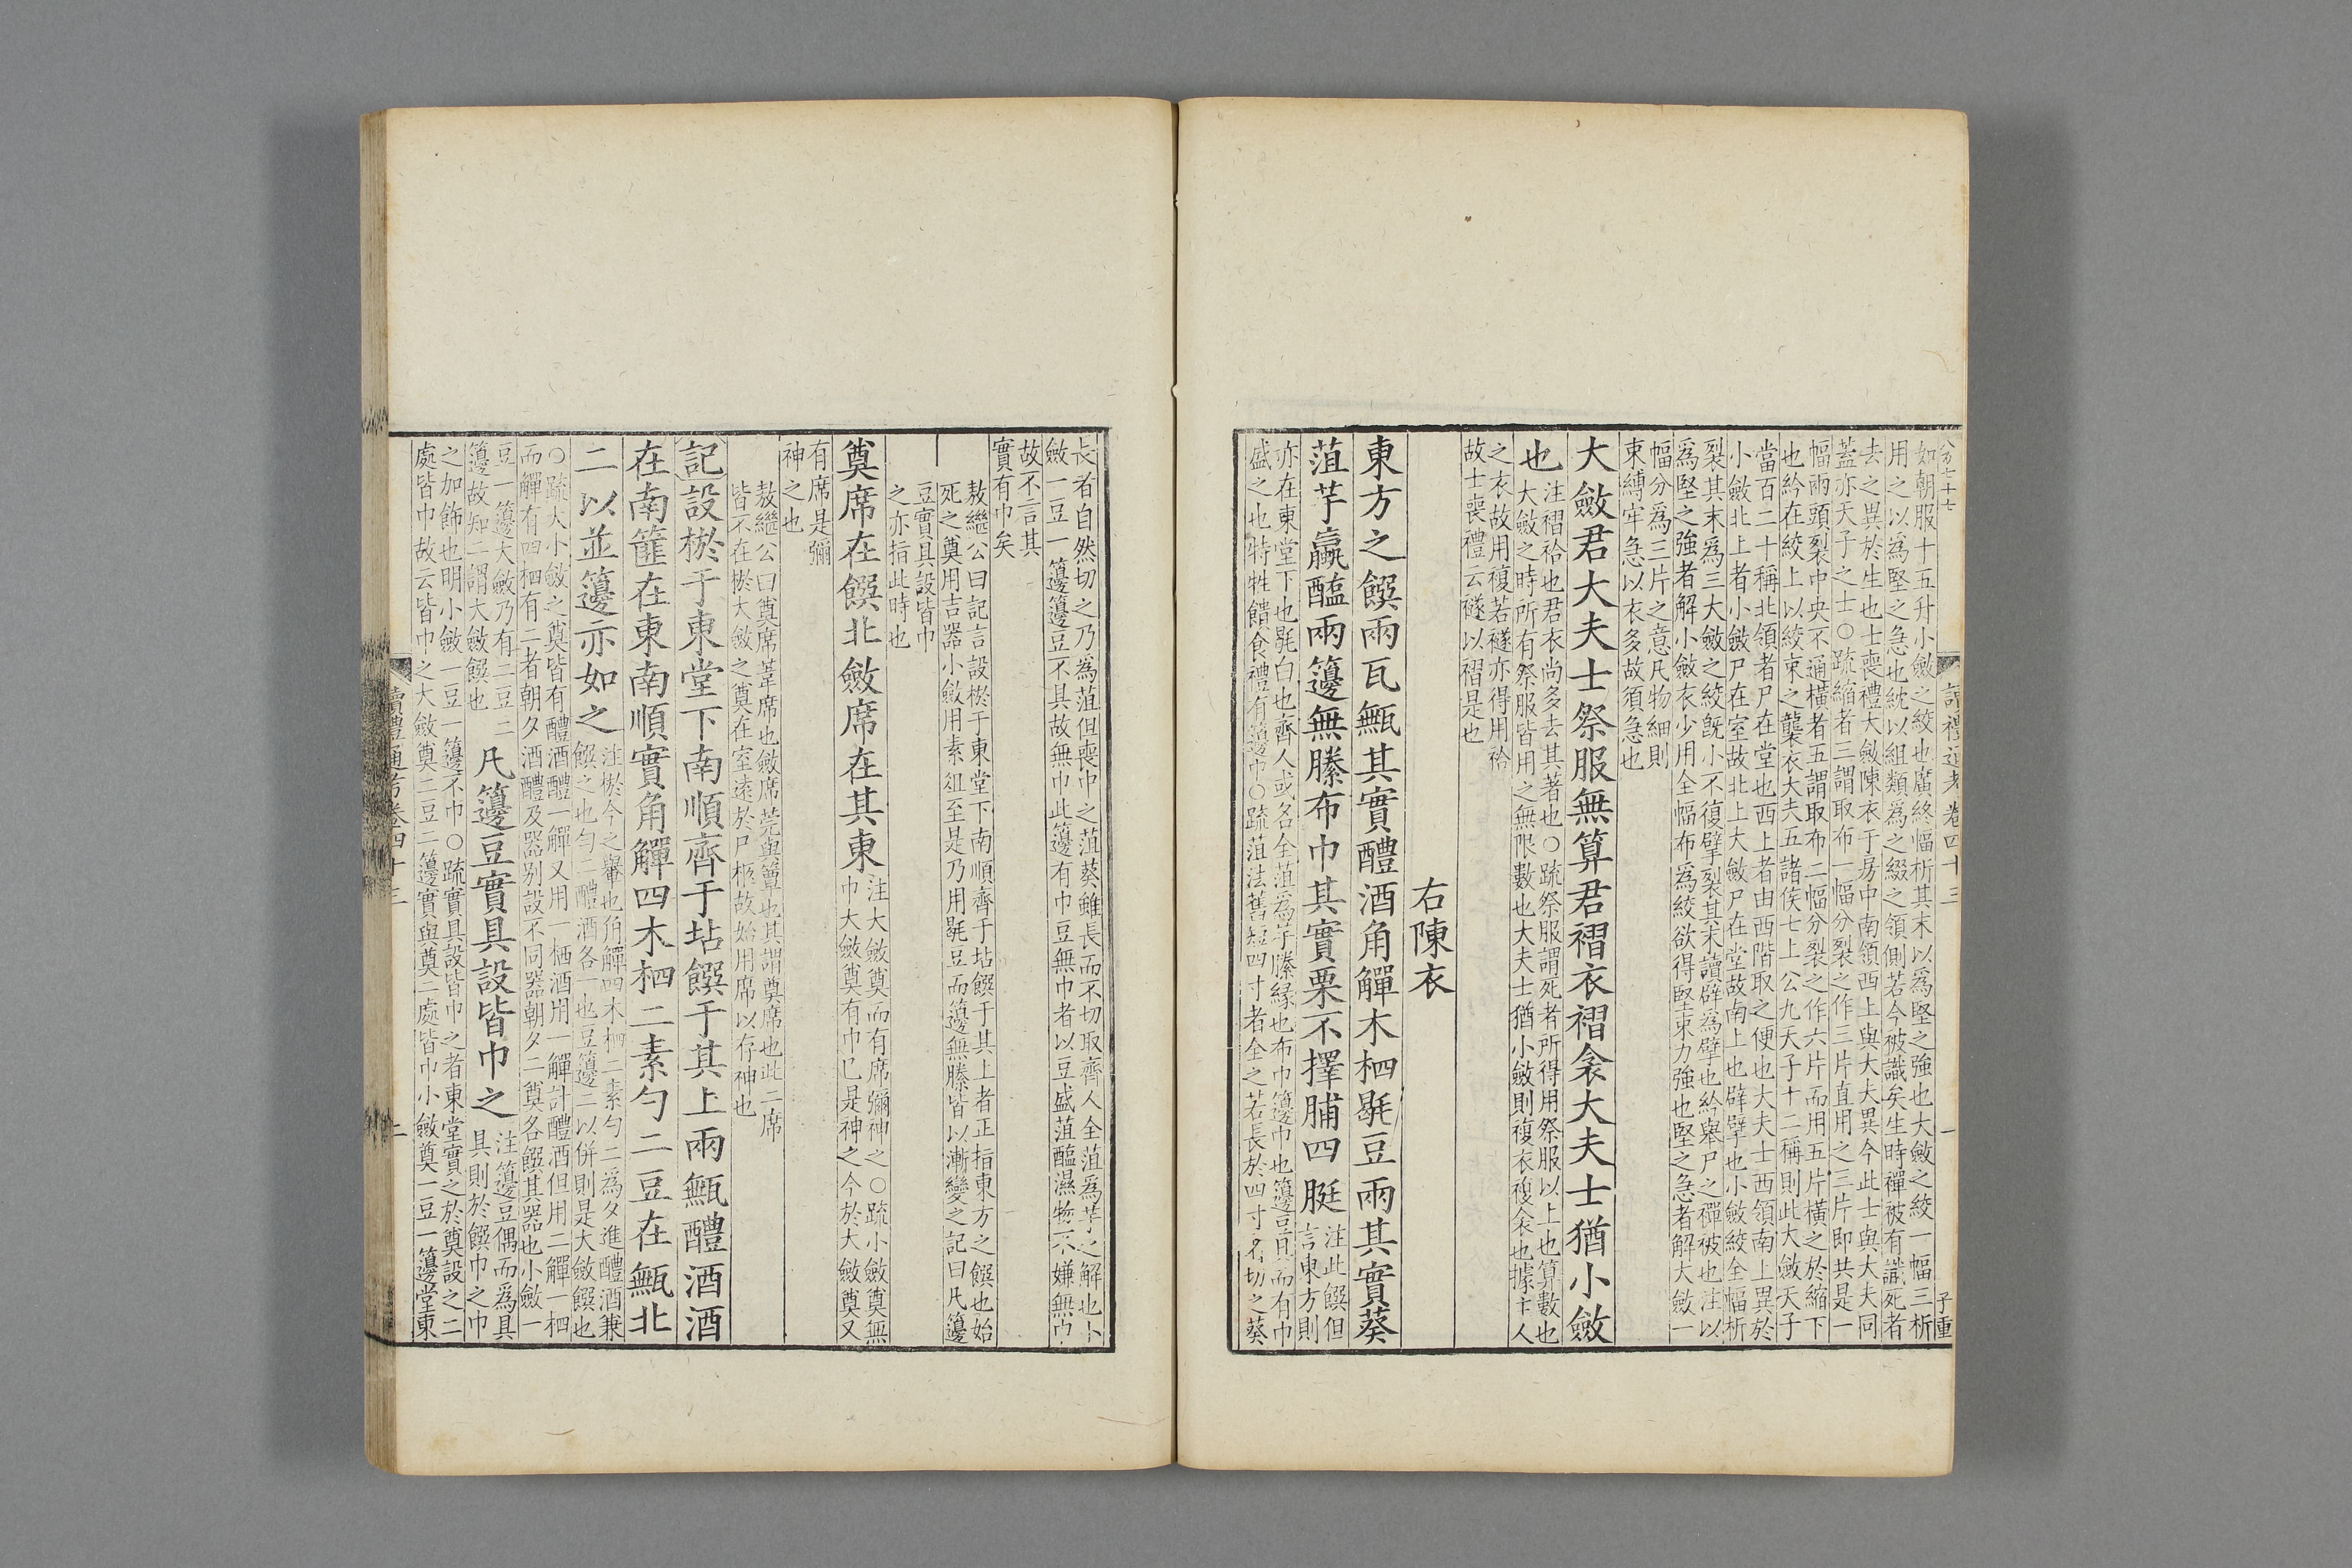 如朝服十五升小斂之絞也廣終幅析其末以爲堅之強也大斂之絞一幅三析
用之以爲堅之急也紞以組類爲之綴之領側若今被識矣生時襌被有識死者
去之異於生也士喪禮大斂陳衣于房中南領西上與大夫異今此士與大夫同
蓋亦天子之士○疏縮者三謂取布一幅分裂之作三片直用之三片即共是一
幅兩頭裂中央不通橫者五謂取布二幅分裂之作六片而用五片橫之於縮下
也紟在絞上以絞束之襲衣大夫五諸侯七上公九天子十二稱則此大斂天子
當百二十稱北領者尸在堂也西上者由西階取之便也大夫士西領南上異於
小斂北上者小斂尸在室故北上大斂尸在堂故南上也辟擘也小斂絞全幅析
裂其末爲三大斂之絞旣小不復擘裂其末讀辟爲擘也紟舉尸之襌被也注以
爲堅之強者解小斂衣少用全幅布爲絞欲得堅束力強也堅之急者解大斂一
幅分爲三片之意凡物細則
束縛牢急以衣多故須急也
大斂君大夫士祭服無算君褶衣褶衾大夫士猶小斂
也
注褶袷也君衣尚多去其著也○疏祭服謂死者所得用祭服以上也算數也
大斂之時所有祭服皆用之無限數也大夫士猶小斂則複衣複衾也據主人
之衣故用複若襚亦得用袷
故士喪禮云襚以褶是也
右陳衣
東方之饌兩瓦甒其實醴酒角觶木柶毼豆兩其實葵
菹芋蠃醢兩籩無縢布巾其實栗不擇脯四脡
注此饌但
言東方則
亦在東堂下也毼白也齊人或名全菹爲芋縢緣也布巾籩巾也籩豆具而有巾
盛之也特牲饋食禮有籩巾○疏菹法舊短四寸者全之若長於四寸者切之葵
長者自然切之乃爲菹但喪中之菹葵雖長而不切取齊人全菹爲芋之解也小
斂一豆一籩籩豆不具故無巾此籩有巾豆無巾者以豆盛菹醢濕物不嫌無巾
故不言其
實有巾矣
敖繼公曰記言設棜于東堂下南順齊于坫饌于其上者正指東方之饌也始
死之奠用吉器小斂用素俎至是乃用毼豆而籩無縢皆以漸變之記曰凡籩
豆實具設皆巾
之亦指此時也
奠席在饌北斂席在其東
注大斂奠而有席彌神之○疏小斂奠無
巾大斂奠有巾已是神之今於大斂奠又
有席是彌
神之也
敖繼公曰奠席葦席也斂席莞與簟也其謂奠席也此二席
皆不在棜大斂之奠在室遠於尸柩故始用席以存神也
記設棜于東堂下南順齊于坫饌于其上兩甒醴酒酒
在南篚在東南順實角觶四木柶二素勺二豆在甒北
二以並籩亦如之
注棜今之轝也伯觶四木柶二素勺二爲夕進醴酒兼
饌之也勺二醴酒各一也豆籩二以併則是大斂饌也
○疏大小斂之奠皆有醴酒醴一觶又用一柶酒用一觶計醴酒但用二觶一柶
而觶有四柶有二者朝夕酒醴及器別設不同器朝夕二奠各饌其器也小斂一
豆一籩大斂乃有二豆二
籩故知二謂大斂饌也
凡籩豆實具設皆巾之
注籩豆偶而爲具
具則於饌巾之巾
之加飾也明小斂一豆一籩不巾○疏實具設皆巾之者東堂實之於奠設之二
處皆巾故云皆巾之大斂奠二豆二籩實與奠二處皆巾小斂奠一豆一籩堂東
讀禮通考卷四十三
二